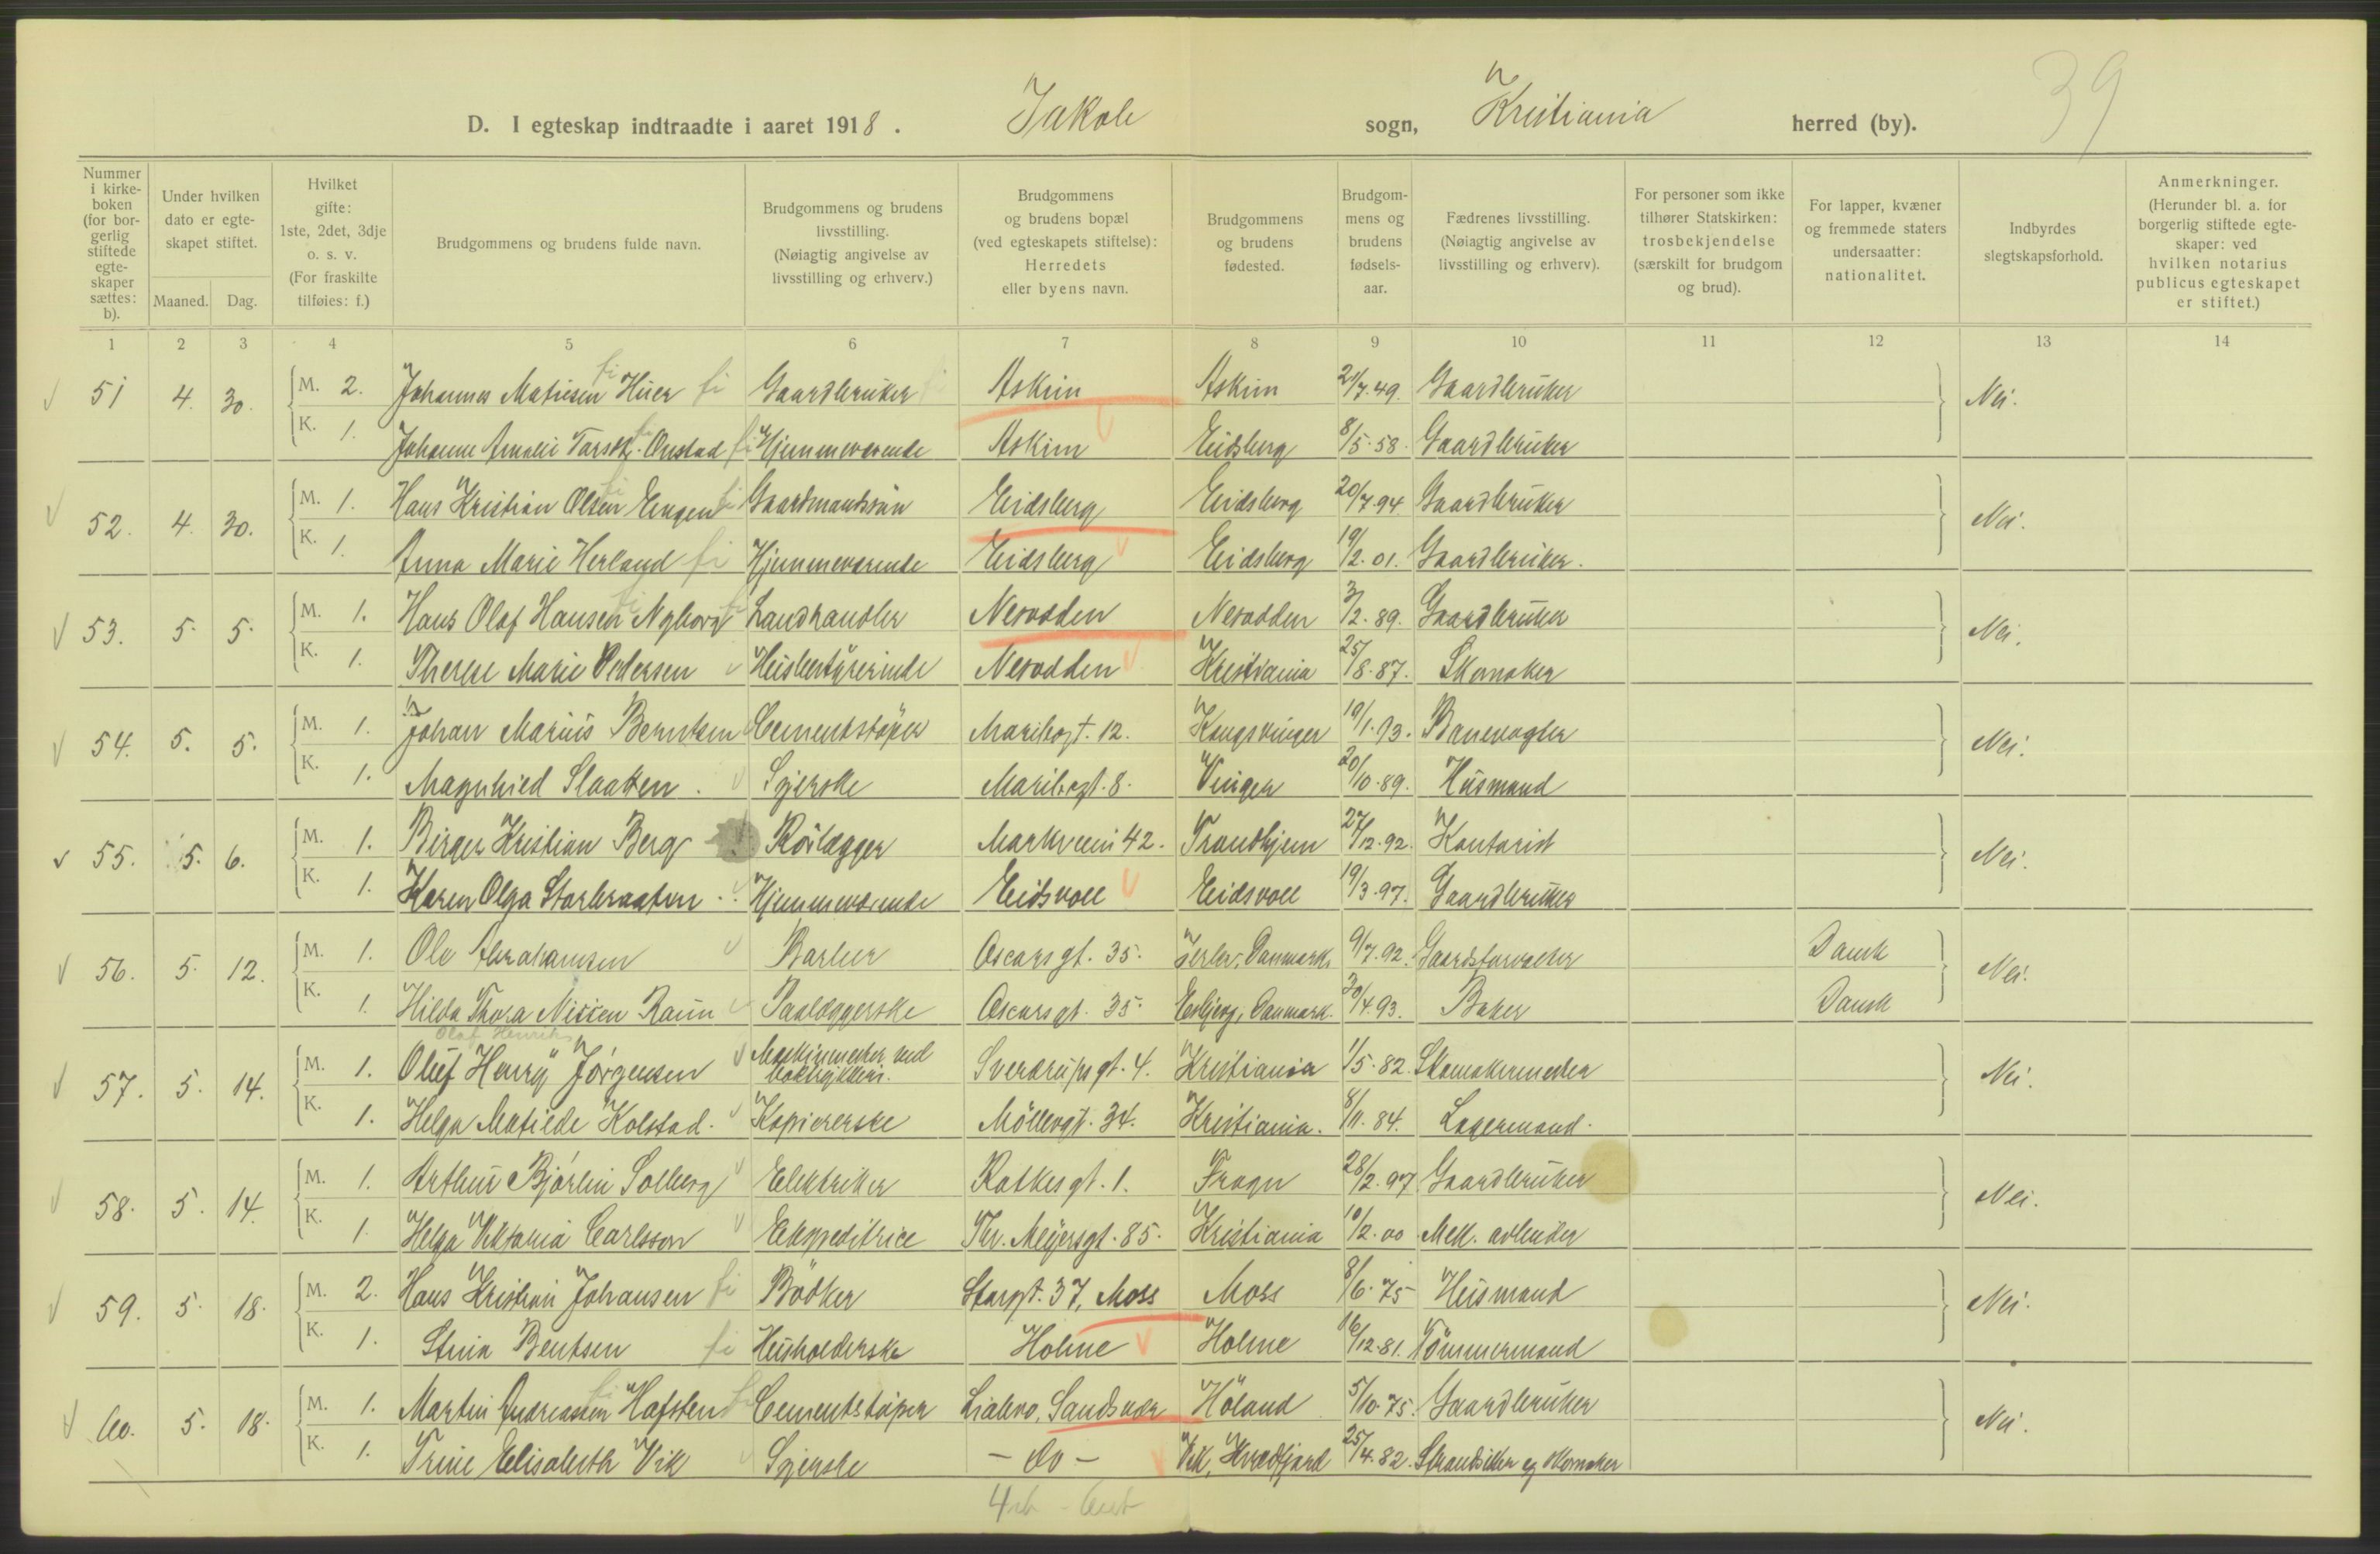 39
D. I egteskap indtraadte i aaret 1918. Jakob sogn, Kristiania herred (by).
Nummer i kirke-boken (for bor-gerlig stiftede egte-skaper sættes: b).
Under hvilken dato er egte-skapet stiftet.
Maaned. Dag.
Hvilket gifte: 1ste, 2det, 3dje o. s. v. (For fraskilte tilføies: f.)
Brudgommens og brudens fulde navn.
Brudgommens og brudens livsstilling. (Nøiagtig angivelse av livsstilling og erhverv.)
Brudgommens og brudens bopæl (ved egteskapets stiftelse): Herredets eller byens navn.
Brudgommens og brudens fødested.
Brudgom-mens og brudens fødsels-aar.
Fædrenes livsstilling. (Nøiagtig angivelse av livsstilling og erhverv).
For personer som ikke tilhører Statskirken: trosbekjendelse (særskilt for brudgom og brud).
For lapper, kvæner og fremmede staters undersaatter: nationalitet.
Indbyrdes slegtskapsforhold.
Anmerkninger. (Herunder bl. a. for borgerlig stiftede egte-skaper: ved hvilken notarius publicus egteskapet er stiftet.)
1 2 3 4 5 6 7 8 9 10 11 12 13 14
51 4. 30. M. 2. Johannes Matiesen Huer Gaardbruker Askim Askim 21/7.49. Gaardbruker Nei.
K. 1. Johanne Amalie Onstad Hjemmeværende Askim Eidsberg 8/5.58. Gaardbruker
52. 4. 30. M. 1. Hans Kristian Olsen Engen Gaardmandssøn Eidsberg Eidsberg 20/7.94 Gaardbruker Nei.
K. 1. Anna Marie Herland Hjemmeværende Eidsberg Eidsberg 19/2.01. Gaardbruker.
53. 5. 5. M. 1. Hans Olaf Hansen Nyborg Landhandler Nesodden Nesodden 3/2.89. Gaardbruker Nei.
K. 1. Therese Marie Pedersen Husbestyrerinde Nesodden Kristiania 25/8.87. Skomaker
54. 5. 5. M. 1. Johan Marius Berntsen Cementstøper Maribogt. 12. Kongsvinger 19/1.93. Banevogter Nei.
K. 1. Magnhild Slaatten. Syerske Maribogt. 8. Vinger 20/10.89. Husmand
55. 5. 6. M. 1. Birger Kristian Berg Rörlægger Markveien 42. Trondhjem 27/12.92. Kontorist Nei.
K. 1. Karen Olga Storbraaten. Hjemmeværende Eidsvoll Eidsvoll 19/3.97. Gaardbruker
56. 5. 12. M. 1. Ole Abrahamsen Barber Oscarsgt. 35. Jerlev, Danmark 9/7.92. Gaardsforvalter Dansk Nei.
K. 1. Hilda Thora Nissen Raun Paalæggerske Oscarsgt. 35. Esbjerg, Danmark. 30/4.93. Baker Dansk
Olaf Henrik
57. 5. 14. M. 1. Oluf Henry Jørgensen Maskinmester ved boktrykkeri. Sverdrupsgt. 4. Kristiania 1/5.82. Skomakermester Nei.
K. 1. Helga Matilde Kolstad. Kopiererske Möllergt. 34. Kristiania. 8/11.84. Lagermand.
58. 5. 14. M. 1. Arthur Bjørlin Solberg Elektriker Ratkesgt. 1. Frogn 28/2.97 Gaardbruker Nei.
K. 1. Helga Viktoria Carlsson Ekspeditrice Thv. Meyersgt. 85. Kristiania 10/2.00 Mek. arbeider
59. 5. 18. M. 2. Hans Kristian Johansen Bödker Storgt. 37, Moss Moss 8/6.75 Husmand Nei.
K. 1. Stina Bentsen Husholderske Holme Holme 16/12.81. Tömmermand
60. 5. 18. M. 1. Martin Andreassen Hafsten Cementstöper Sandsvær Höland 5/10.75. Gaardbruker Nei.
K. 1. Trine Elisabeth Vik Syerske – do – Vik, Kvædfjord 25/4.82. Strandsitter og skomaker